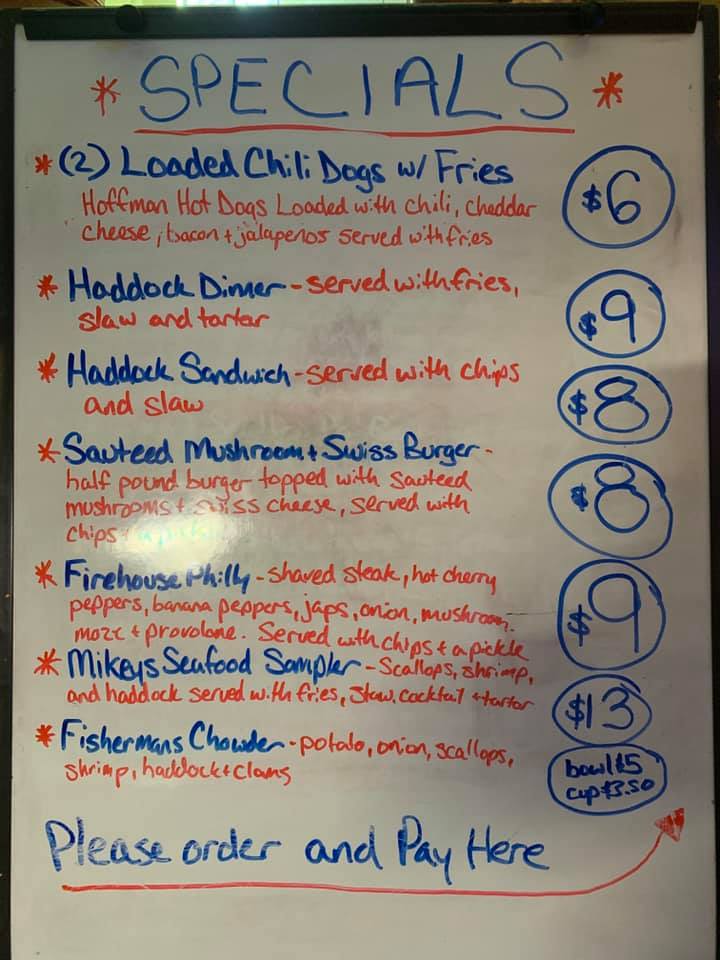 * SPECIALS *
* (2) Loaded Chili Dogs w/ Fries $6
Hoffman Hot Dogs Loaded with chili, cheddar
cheese, bacon + jalapenos served with fries
* Haddock Dinner - served with fries, $9
slaw and tartar
* Haddock Sandwich - served with chips $8
and slaw
* Sauteed Mushroom + Swiss Burger - $8
half pound burger topped with sauteed
mushrooms + swiss cheese, served with
chips + a pickle
* Firehouse Philly - shaved steak, hot cherry $9
peppers, banana peppers, japs, onion, mushroom,
mozz + provolone. Served with chips + a pickle
* Mikeys Seafood Sampler - Scallops, shrimp, $13
and haddock served with fries, slaw, cocktail + tartar
* Fishermans Chowder - potato, onion, scallops, bowl $5
shrimp, haddock + clams cup $3.50
Please order and Pay Here